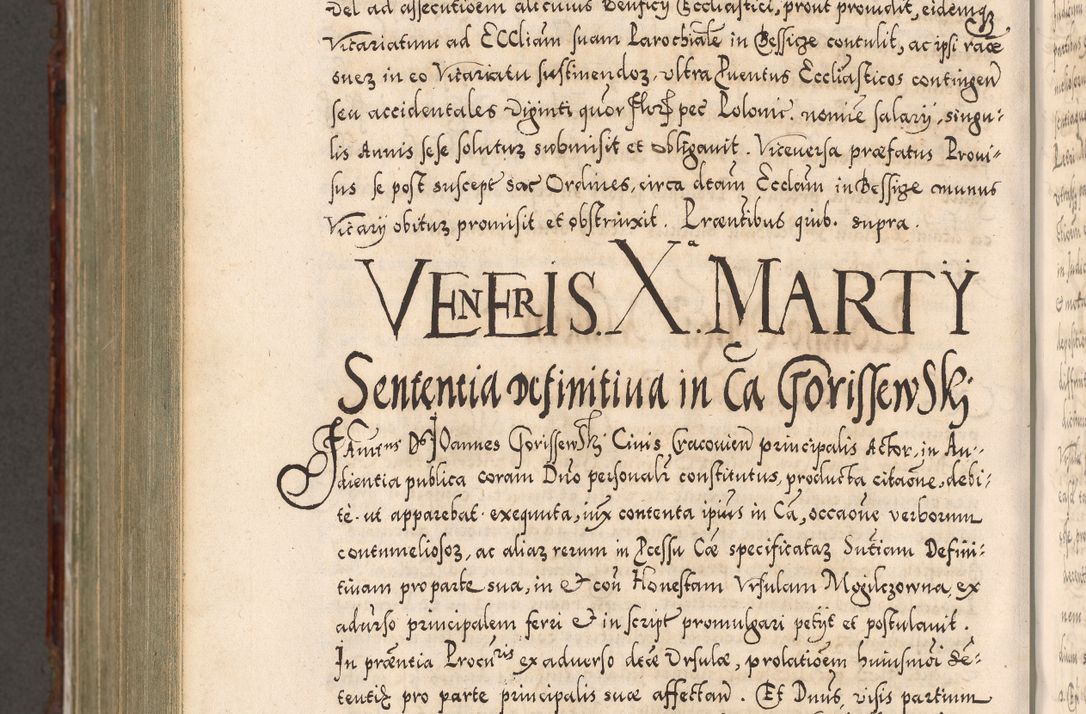 del ad assecutioem alicuius Beneficy Eccliastici, prout promalit, eidemq3
Vicariatum ad ECCliam suam Parochiale in Bessige contulit, ac ipsi raoe
onez in eo Vicariatu sustinendoz, ultra Puentus Eccliasticos contingen
seu accidentales Viginti quor Flor pec Polonic. nomie salary, singu-
lis Annis sese soluturz submisit et obligauit. Viceuersa præfatus Proui-
sus se post suscept sac Ordines, circa dtam Ecclam in Bessige munus
Vicary obituz promisit et obstrinxit. Præntibus quib. supra.
VENERIS. Xª. MARTŸ
Sententia definitiua in Ca GorissewSkj
FAmens Ds JOannes GorissewSkj Ciuis Cracouien principalis Actor, in Au-
dientia publica coram Dno personalr constitutus, producta citaone, debi-
te. ut apparebat. exequuta, iux contenta ipius in Ca, occaone verborum
contumeliosoz, ac aliaz rerum in Pcessu Cæ specificataz Sntiam Defini-
tiuam pro parte sua, in et cou Honestam Vrsulam Mogilczowna, ex
aduerso principalem ferri et in script promulgari petÿt et postulauit.
In præntia Procuris ex aduerso dctæ Vrsulæ, prolatioem huiusmoi Sē-
tentiæ pro parte principalis suæ affectan. Et Dnus, visis partium